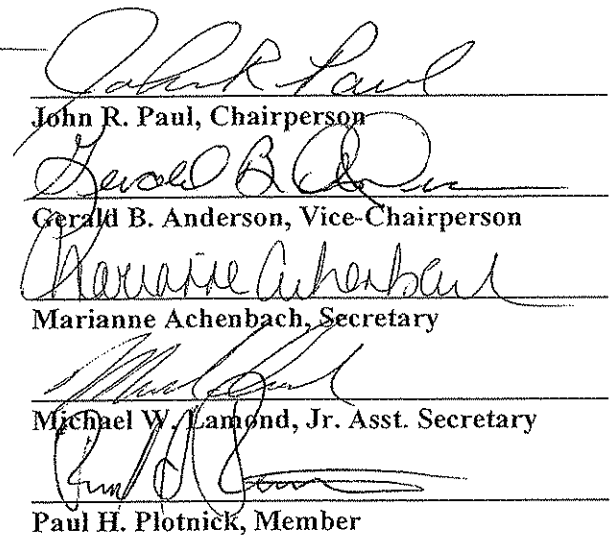 John R. Paul
John R. Paul, Chairperson
Gerald B. Anderson, Vice-Chairperson
Marianne Achenbach
Marianne Achenbach, Secretary
Michael W. Lamond, Jr. Asst. Secretary
Paul H. Plotnick, Member